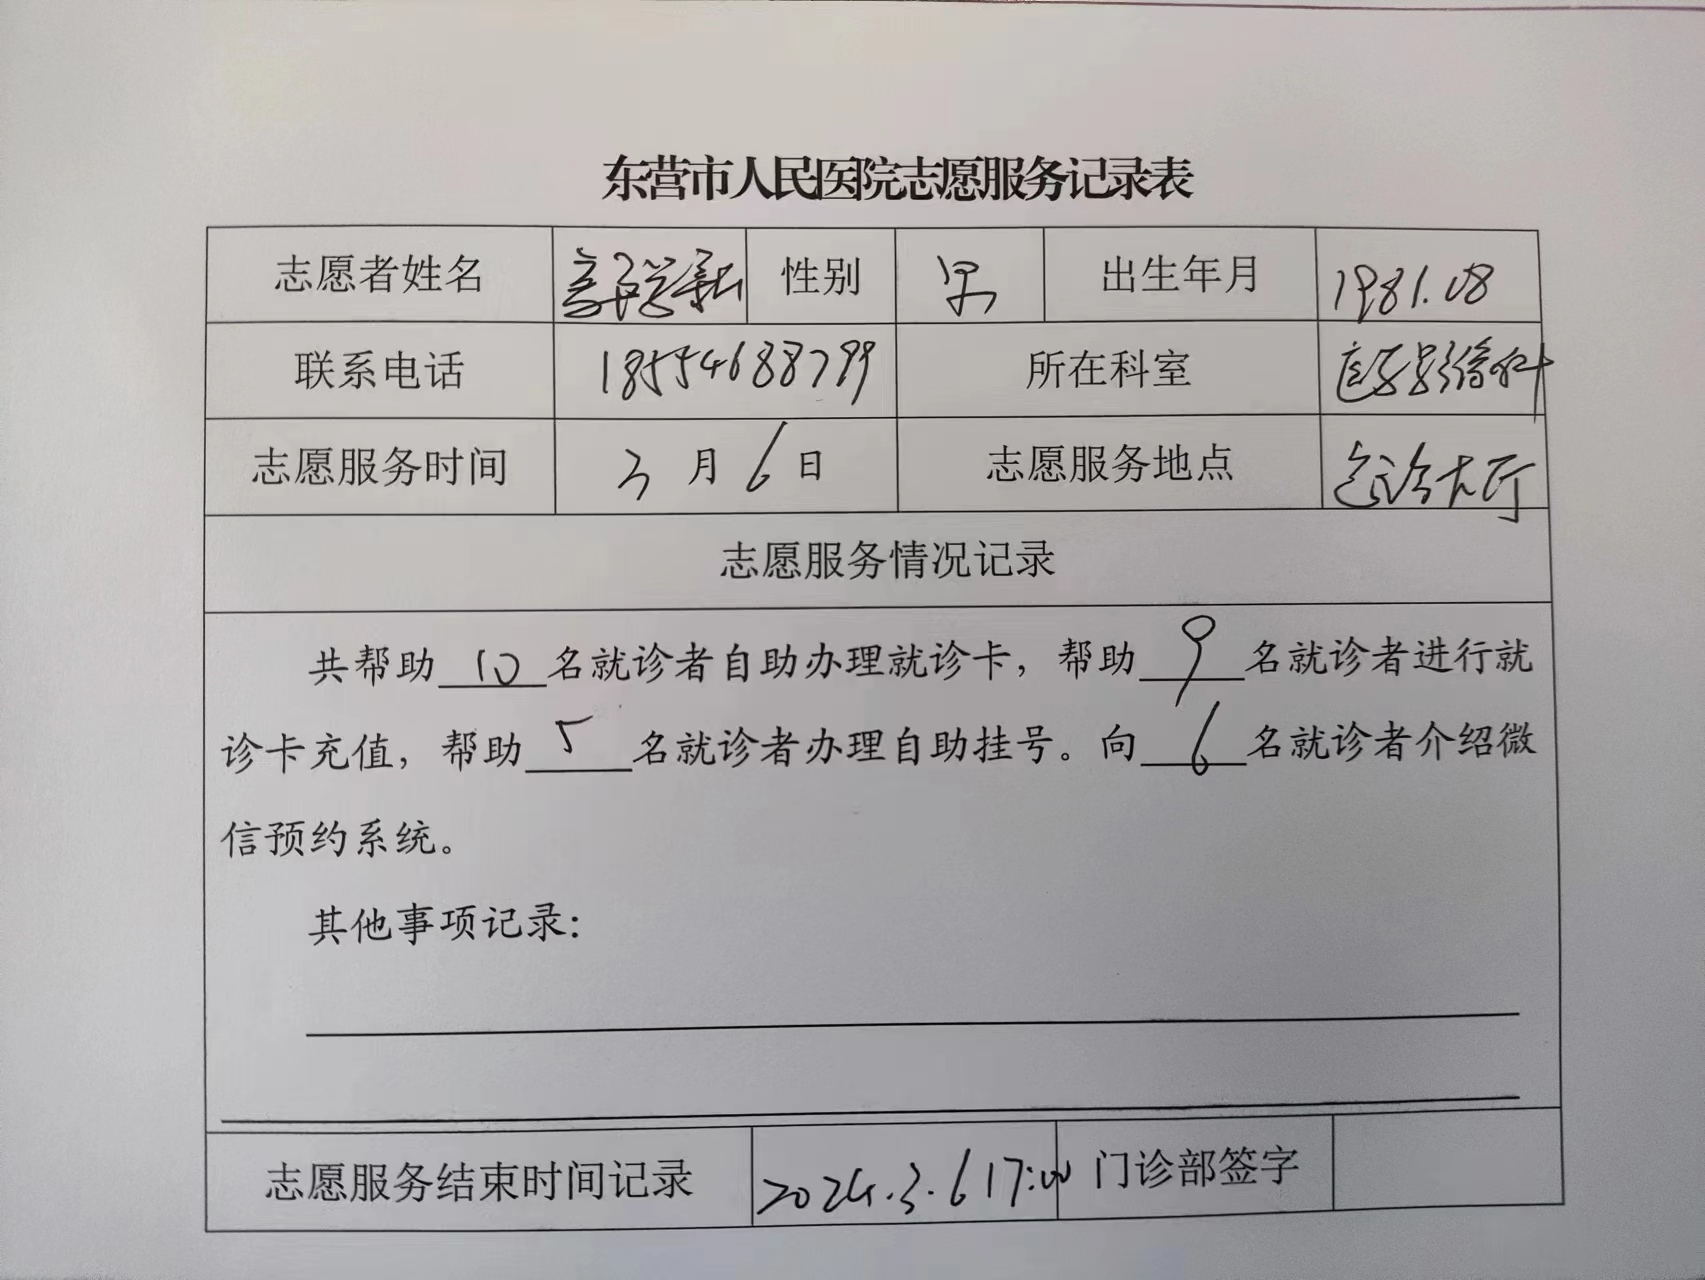 东营市人民医院志愿服务记录表
志愿者姓名 性别 男 出生年月 1981.08
联系电话 18554688799 所在科室 医学影像科
志愿服务时间 3月6日 志愿服务地点 门诊大厅
志愿服务情况记录
共帮助10名就诊者自助办理就诊卡，帮助9名就诊者进行就
诊卡充值，帮助5名就诊者办理自助挂号。向6名就诊者介绍微
信预约系统。
其他事项记录：
志愿服务结束时间记录 2024.3.6 17:00 门诊部签字